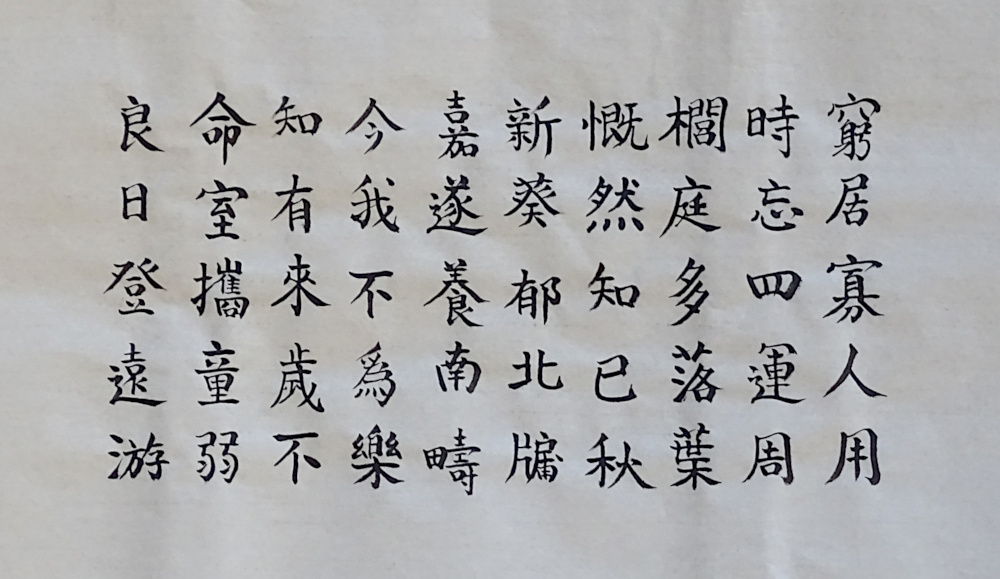 窮居寡人用
時忘四運周
櫚庭多落葉
慨然知已秋
新葵郁北牖
嘉遂養南疇
今我不爲樂
知有來歲不
命室攜童弱
良日登遠游